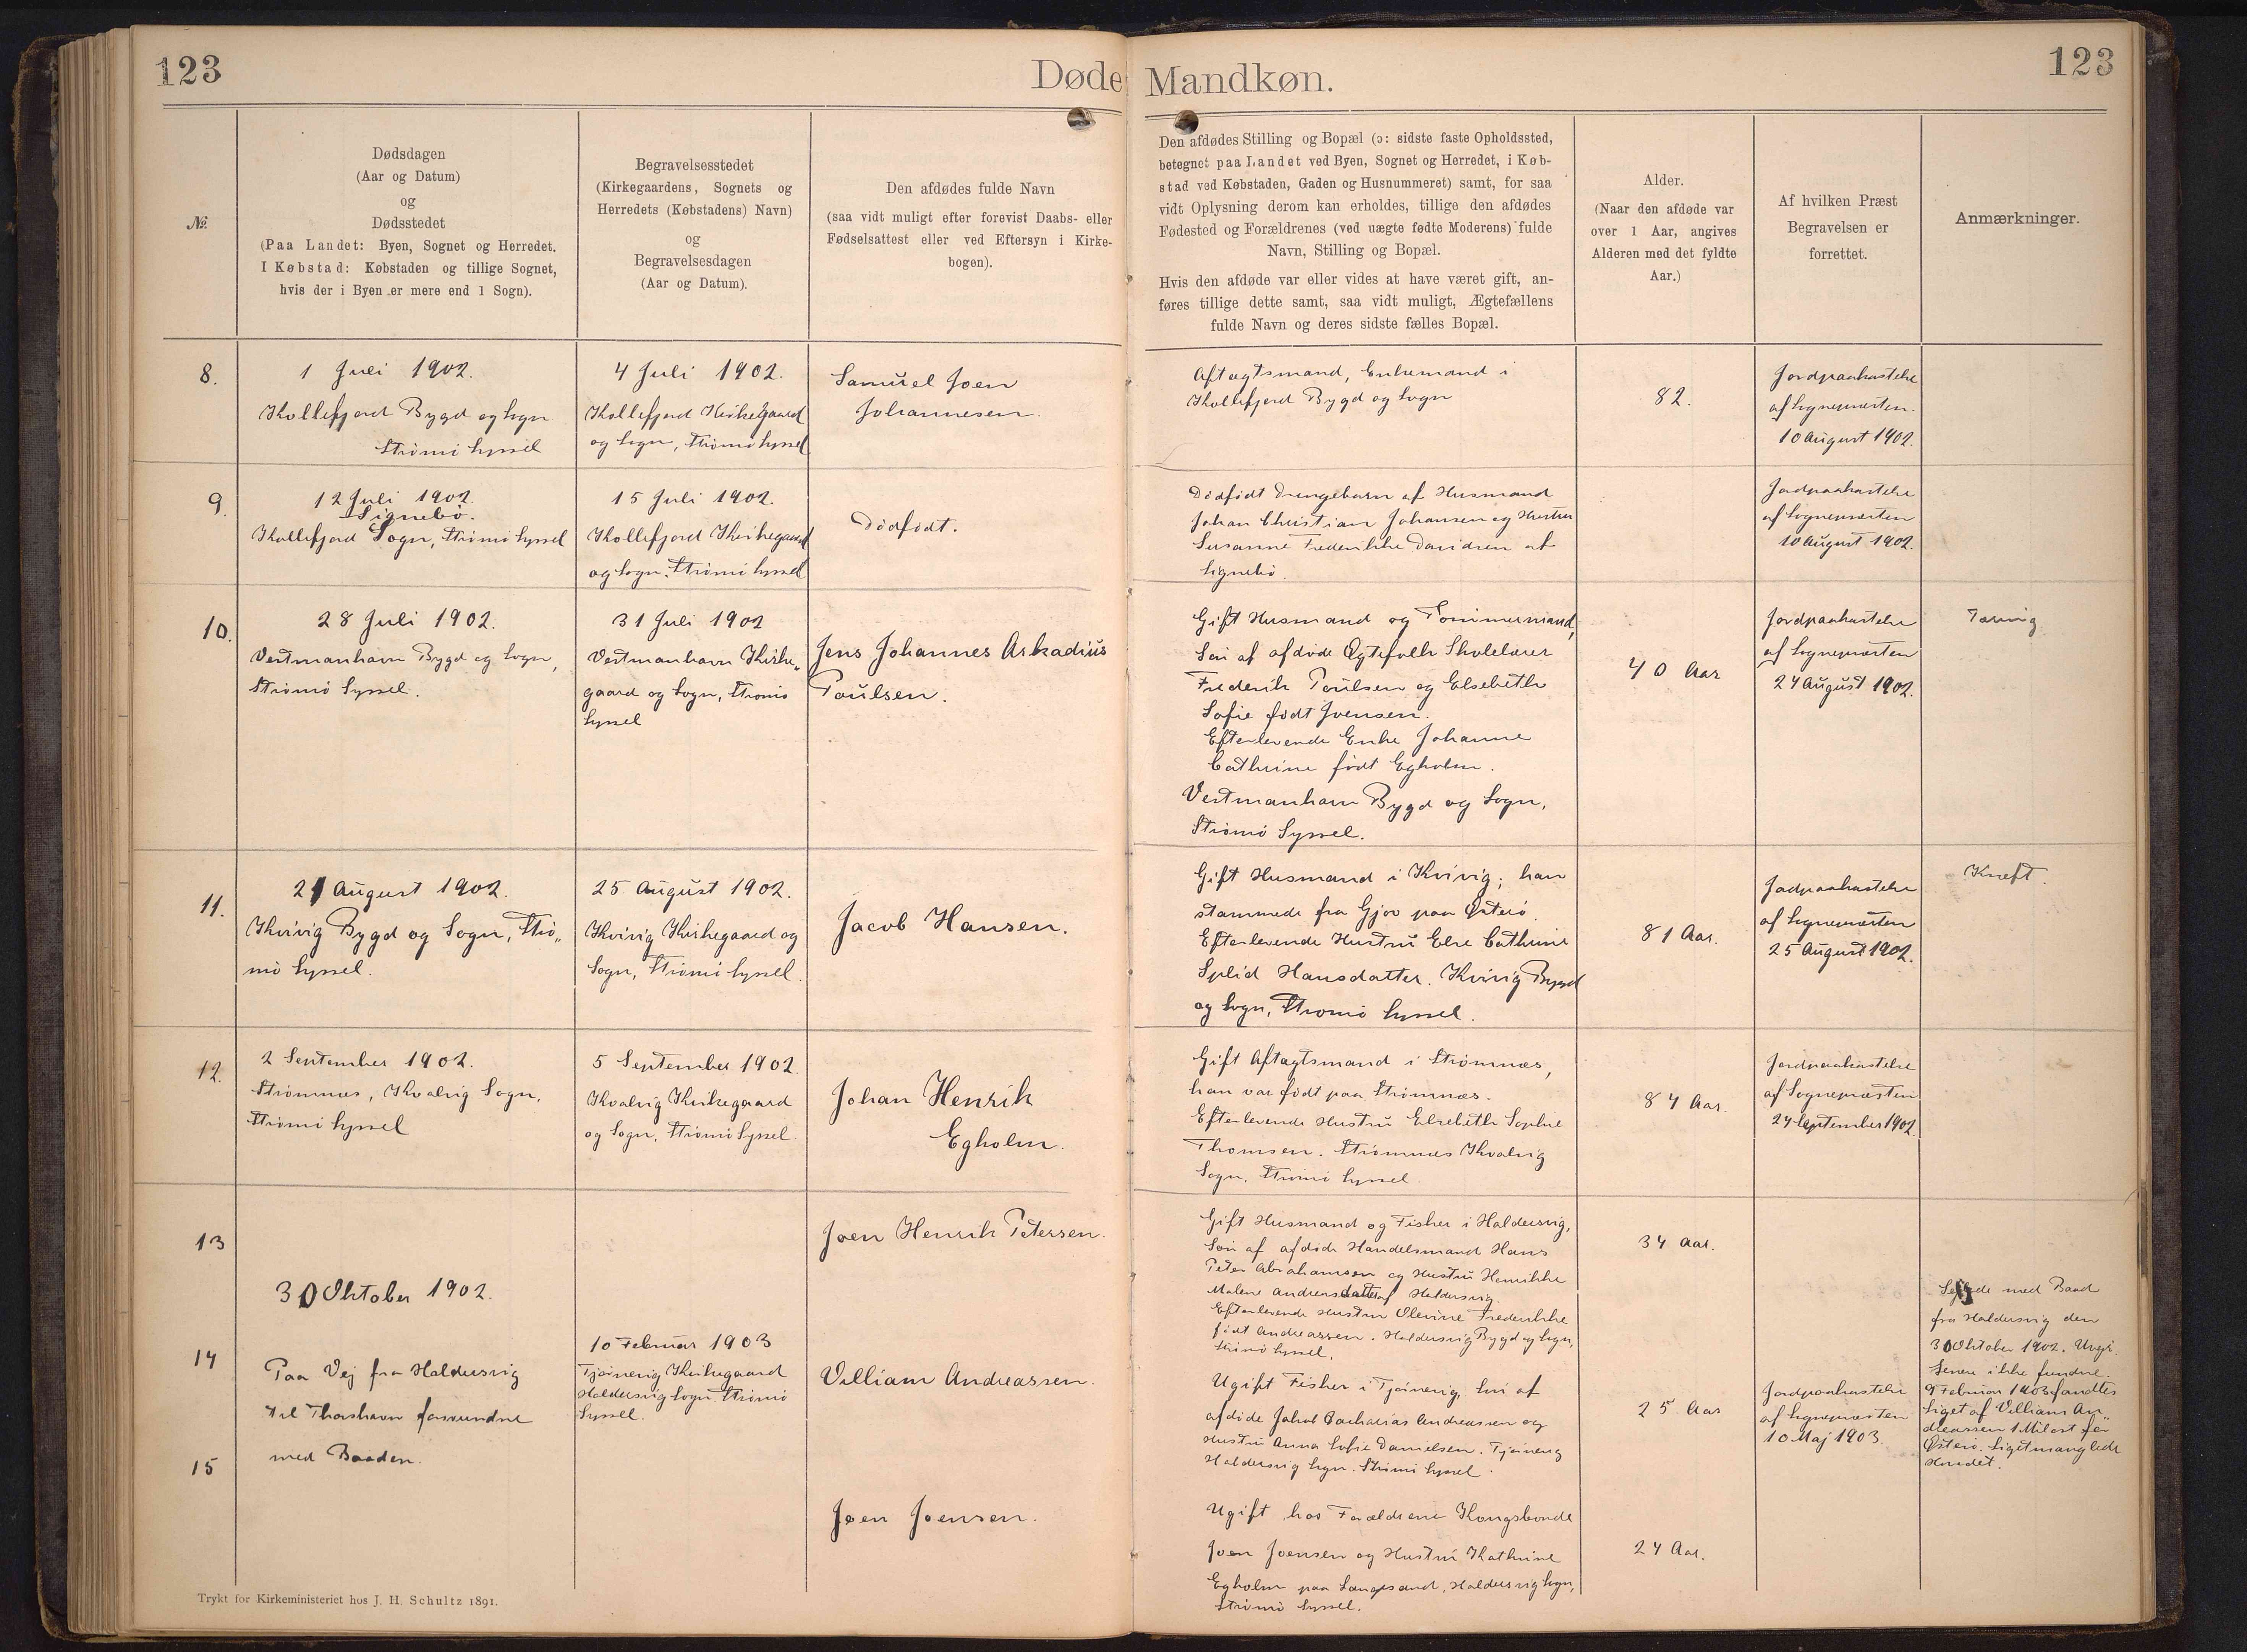 123
Døde
Mandkøn.
123
№
Dødsdagen
(Aar og Datum)
og
Dødsstedet
(Paa Landet: Byen, Sognet og Herredet.
I Købstad: Købstaden og tillige Sognet,
hvis der i Byen er mere end 1 Sogn).
Begravelsesstedet
(Kirkegaardens, Sognets og
Herredets (Købstadens) Navn)
og
Begravelsesdagen
(Aar og Datum).
Den afdødes fulde Navn
(saa vidt muligt efter forevist Daabs- eller
Fødselsattest eller ved Eftersyn i Kirke-
bogen).
Den afdødes Stilling og Bopæl (ɔ: sidste faste Opholdssted,
betegnet paa Landet ved Byen, Sognet og Herredet, i Køb-
stad ved Købstaden, Gaden og Husnummeret) samt, for saa
vidt Oplysning derom kan erholdes, tillige den afdødes
Fødested og Forældrenes (ved uægte fødte Moderens) fulde
Navn, Stilling og Bopæl.
Hvis den afdøde var eller vides at have været gift, an-
føres tillige dette samt, saa vidt muligt, Ægtefællens
fulde Navn og deres sidste fælles Bopæl.
Alder.
(Naar den afdøde var
over 1 Aar, angives
Alderen med det fyldte
Aar.)
Af hvilken Præst
Begravelsen er
forrettet.
Anmærkninger.
8.
1 Juli 1902.
Kollefjord Bygd og Sogn
Strømø Syssel
4 Juli 1902.
Kollefjord Kirkegaard
og Sogn, Strømø Syssel
Samuel Joen
Johannesen.
Aftægtsmand, Enkemand i
Kollefjord Bygd og Sogn
82.
Jordpaakastelse
af Sognepræsten.
10 August 1902.
9.
12 Juli 1902.
Signebø.
Kollefjord Sogn, Strømø Syssel
15 Juli 1902.
Kollefjord Kirkegaard
og Sogn, Strømø Syssel
Dødfødt.
Dødfødt Drengebarn af Husmand
Johan Christian Johansen og Hustru
Susanne Frederikke Davidsen af
Signebø.
Jordpaakastelse
af Sognepræsten
10 August 1902.
10.
28 Juli 1902.
Vestmanhavn Bygd og Sogn,
Strømø Syssel.
31 Juli 1902
Vestmanhavn Kirke„
gaard og Sogn, Strømø
Syssel
Jens Johannes Arkadius
Poulsen.
Gift Husmand og Tømmermand,
Søn af afdøde Ægtefolk Skolelærer
Frederik Poulsen og Elsebeth
Sofie født Joensen.
Efterlevende Enke Johanne
Cathrine født Egholm.
Vestmanhavn Bygd og Sogn,
Strømø Syssel.
40 Aar
Jordpaakastelse
af Sognepræsten
24 August 1902.
Tæring
11.
21 August 1902.
Kvivig Bygd og Sogn, Strø„
mø Syssel.
25 August 1902.
Kvivig Kirkegaard og
Sogn, Strømø Syssel.
Jacob Hansen.
Gift Husmand i Kvivig; han
stammede fra Gjov paa Østerø.
Efterlevende Hustru Else Cathrine
Splid Hansdatter. Kvivig Bygd
og Sogn, Strømø Syssel.
81 Aar.
Jordpaakastelse
af Sognepræsten
25 August 1902.
Kræft.
12.
2 September 1902.
Strømnæs, Kvalvig Sogn,
Strømø Syssel
5 September 1902.
Kvalvig Kirkegaard
og Sogn, Strømø Syssel.
Johan Henrik
Egholm.
Gift Aftægtsmand i Strømnæs,
han var født paa Strømnæs.
Efterlevende Hustru Elsebeth Sophie
Thomsen. Strømnæs Kvalvig
Sogn, Strømø Syssel.
84 Aar.
Jordpaakastelse
af Sognepræsten
24 September 1902.
13
30 Oktober 1902.
Joen Henrik Petersen.
Gift Husmand og Fisker i Haldersvig,
Søn af afdøde Handelsmand Hans
Peter Abrahamsen og Hustru Henrikke
Malene Andreasdatter af Haldersvig.
Efterlevende Hustru Olevine Frederikke
født Andreassen. Haldersvig Bygd og Sogn,
Strømø Syssel.
34 Aar.
14
Paa Vej fra Haldersvig
til Thorshavn forsvundne
med Baaden.
10 Februar 1903
Tjørnevig Kirkegaard
Haldersvig Sogn Strømø
Syssel.
Villiam Andreassen.
Ugift Fisker i Tjørnevig, Søn af
afdøde Jakob Zacharias Andreassen og
Hustru Anna Sofie Danielsen. Tjørnevig
Haldersvig Sogn. Strømø Syssel.
25 Aar
Jordpaakastelse
af Sognepræsten
10 Maj 1903.
med Baad
fra Haldersvig den
30 Oktober 1902.
Senere ikke fundne.
9 Februar 1903 fandtes
Liget af Villiam An„
dreassen 1 Mil øst for
Østerø. Liget manglede
Hovedet.
15
Joen Joensen.
Ugift, hos Forældrene Kongsbonde
Joen Joensen og Hustru Kathrine
Egholm paa Langesand, Haldersvig Sogn,
Strømø Syssel.
24 Aar.
Trykt for Kirkeministeriet hos J. H. Schultz 1891.